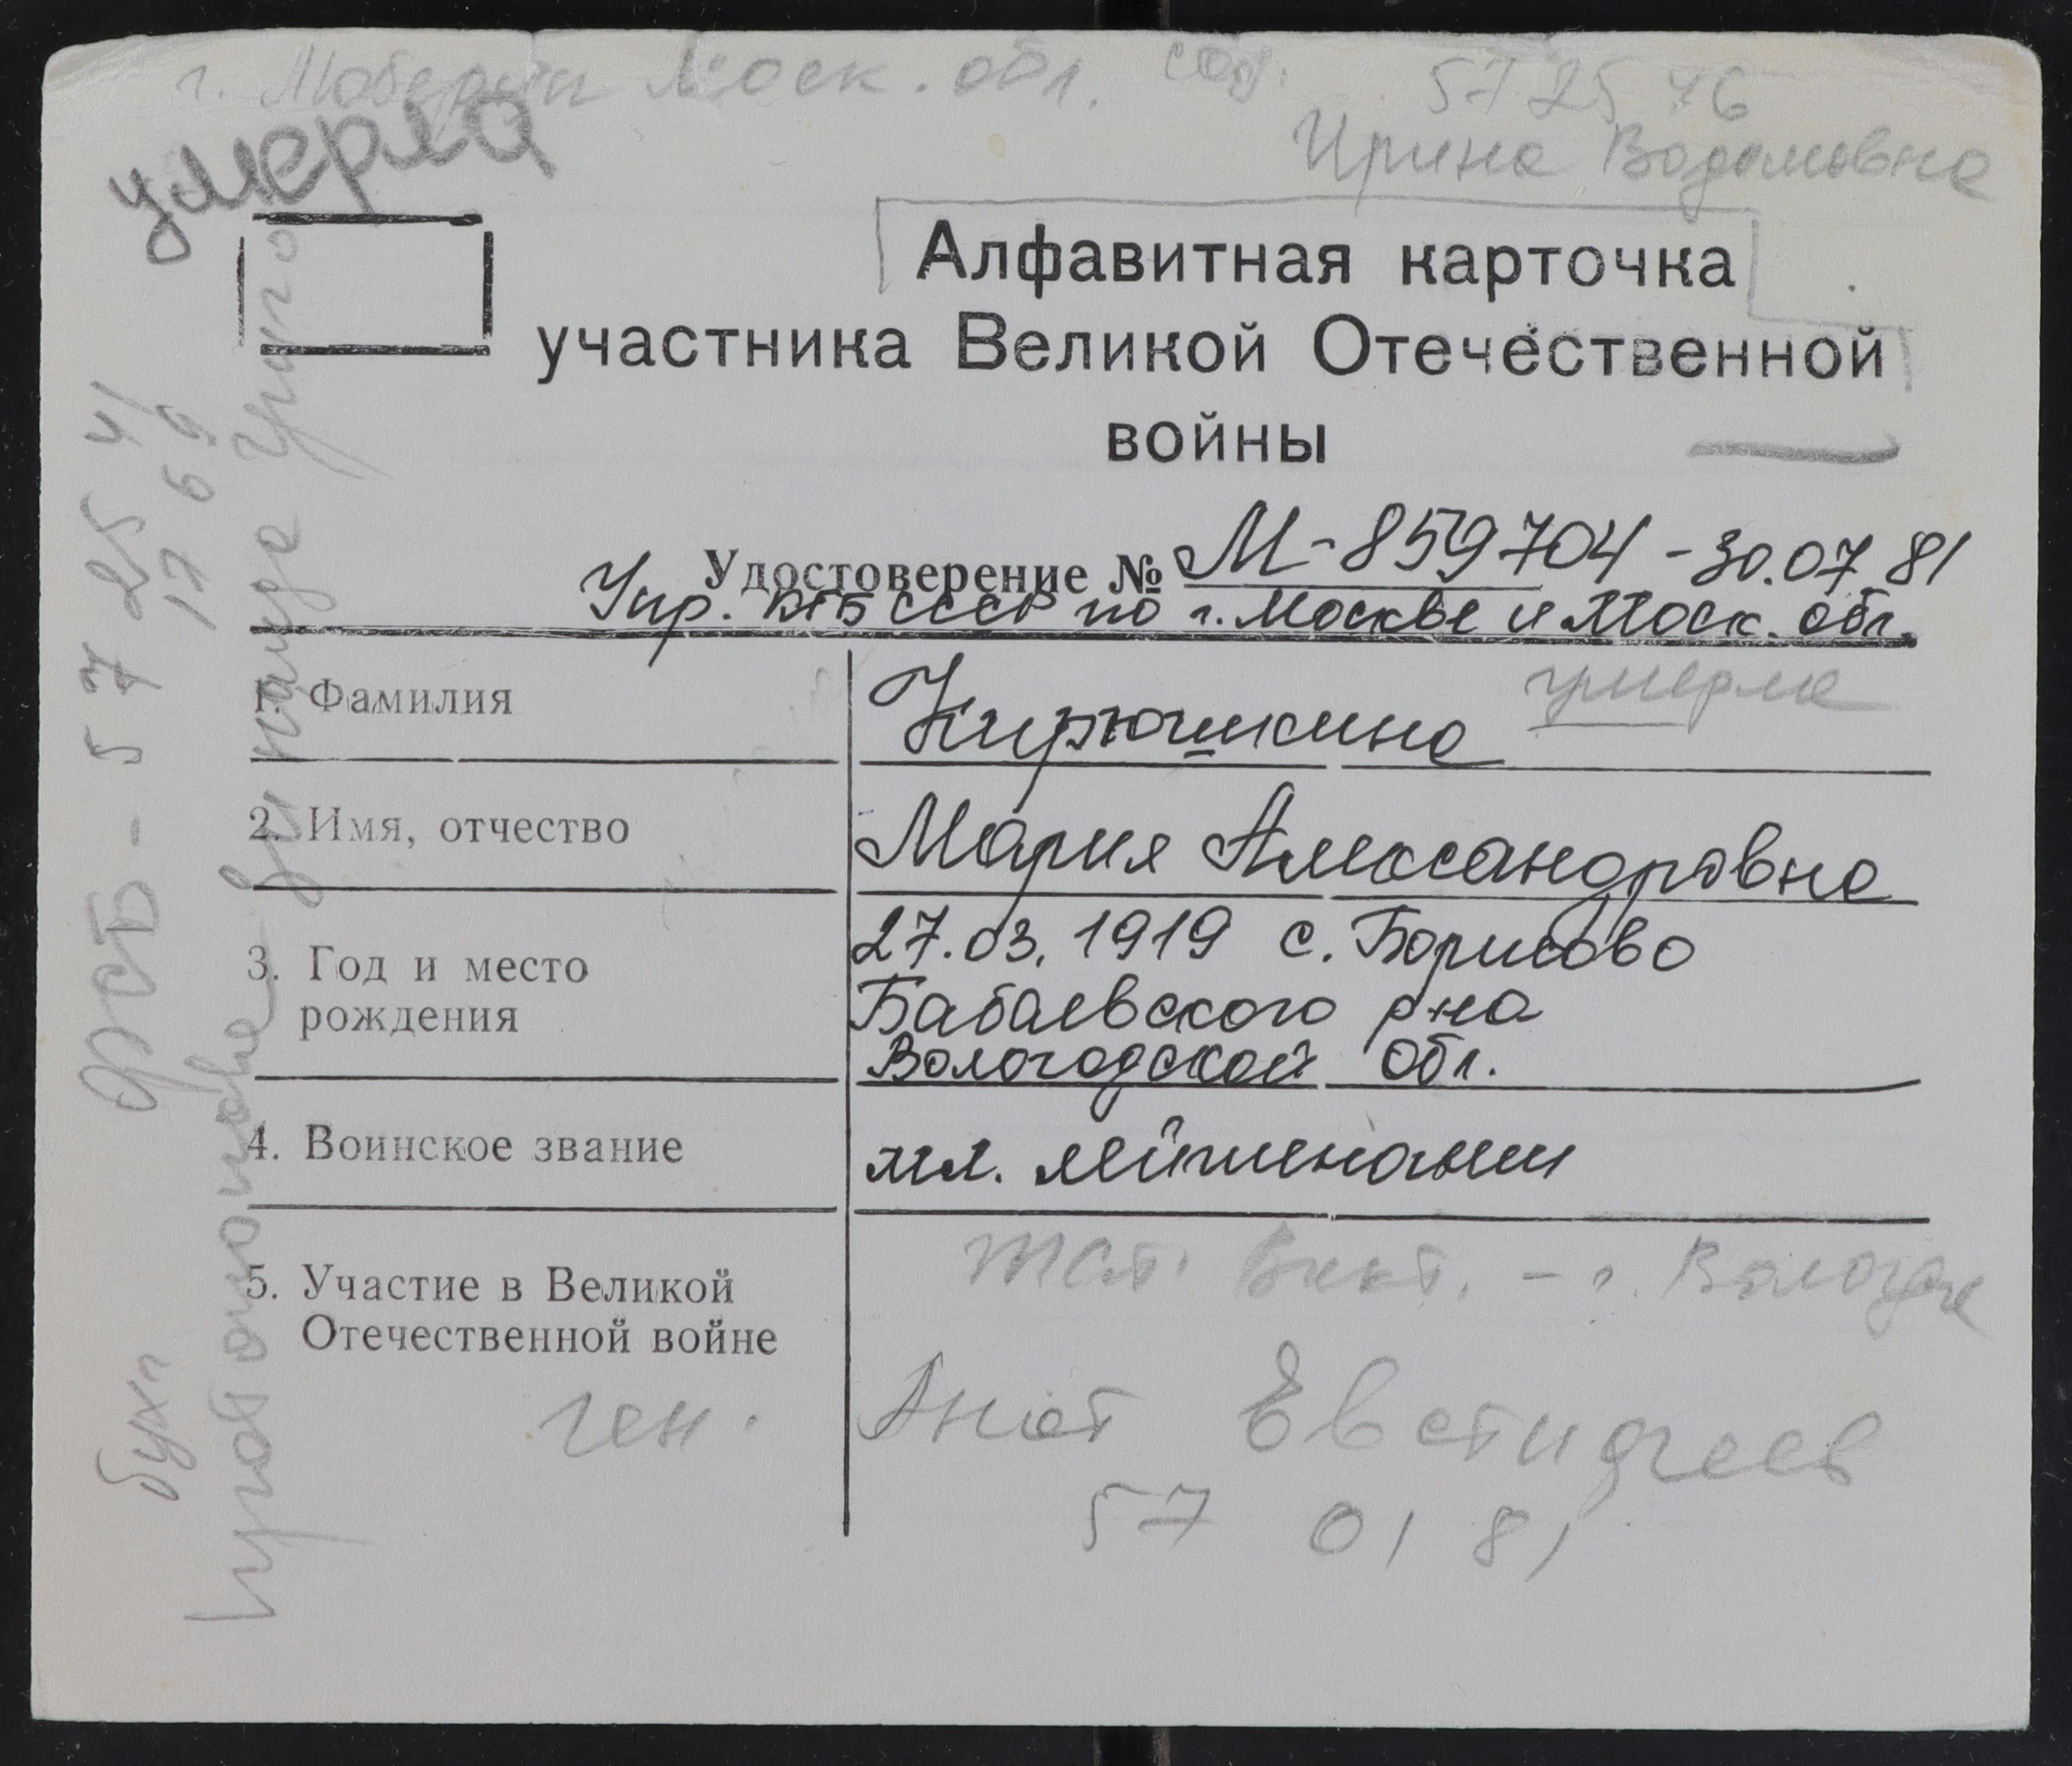 г. Люберцы Моск. обл.
57 25 76
умерла
Ирина
Алфавитная карточка
участника Великой Отечественной
войны
Удостоверение № М-859704 - 30.07.81
Упр. КГБ СССР по г. Москве и Моск. обл.
умерла
1. Фамилия Кирюшкина
2. Имя, отчество Мария Александровна
3. Год и место
рождения
27.03.1919 с. Борисово
Бабаевского р-на
Вологодской обл.
4. Воинское звание мл. лейтенант
5. Участие в Великой
Отечественной войне
г. Вологда
ген. Анат Евстигнеев
57 01 81
ФСБ - 5 7 25 41
17 69
бухг